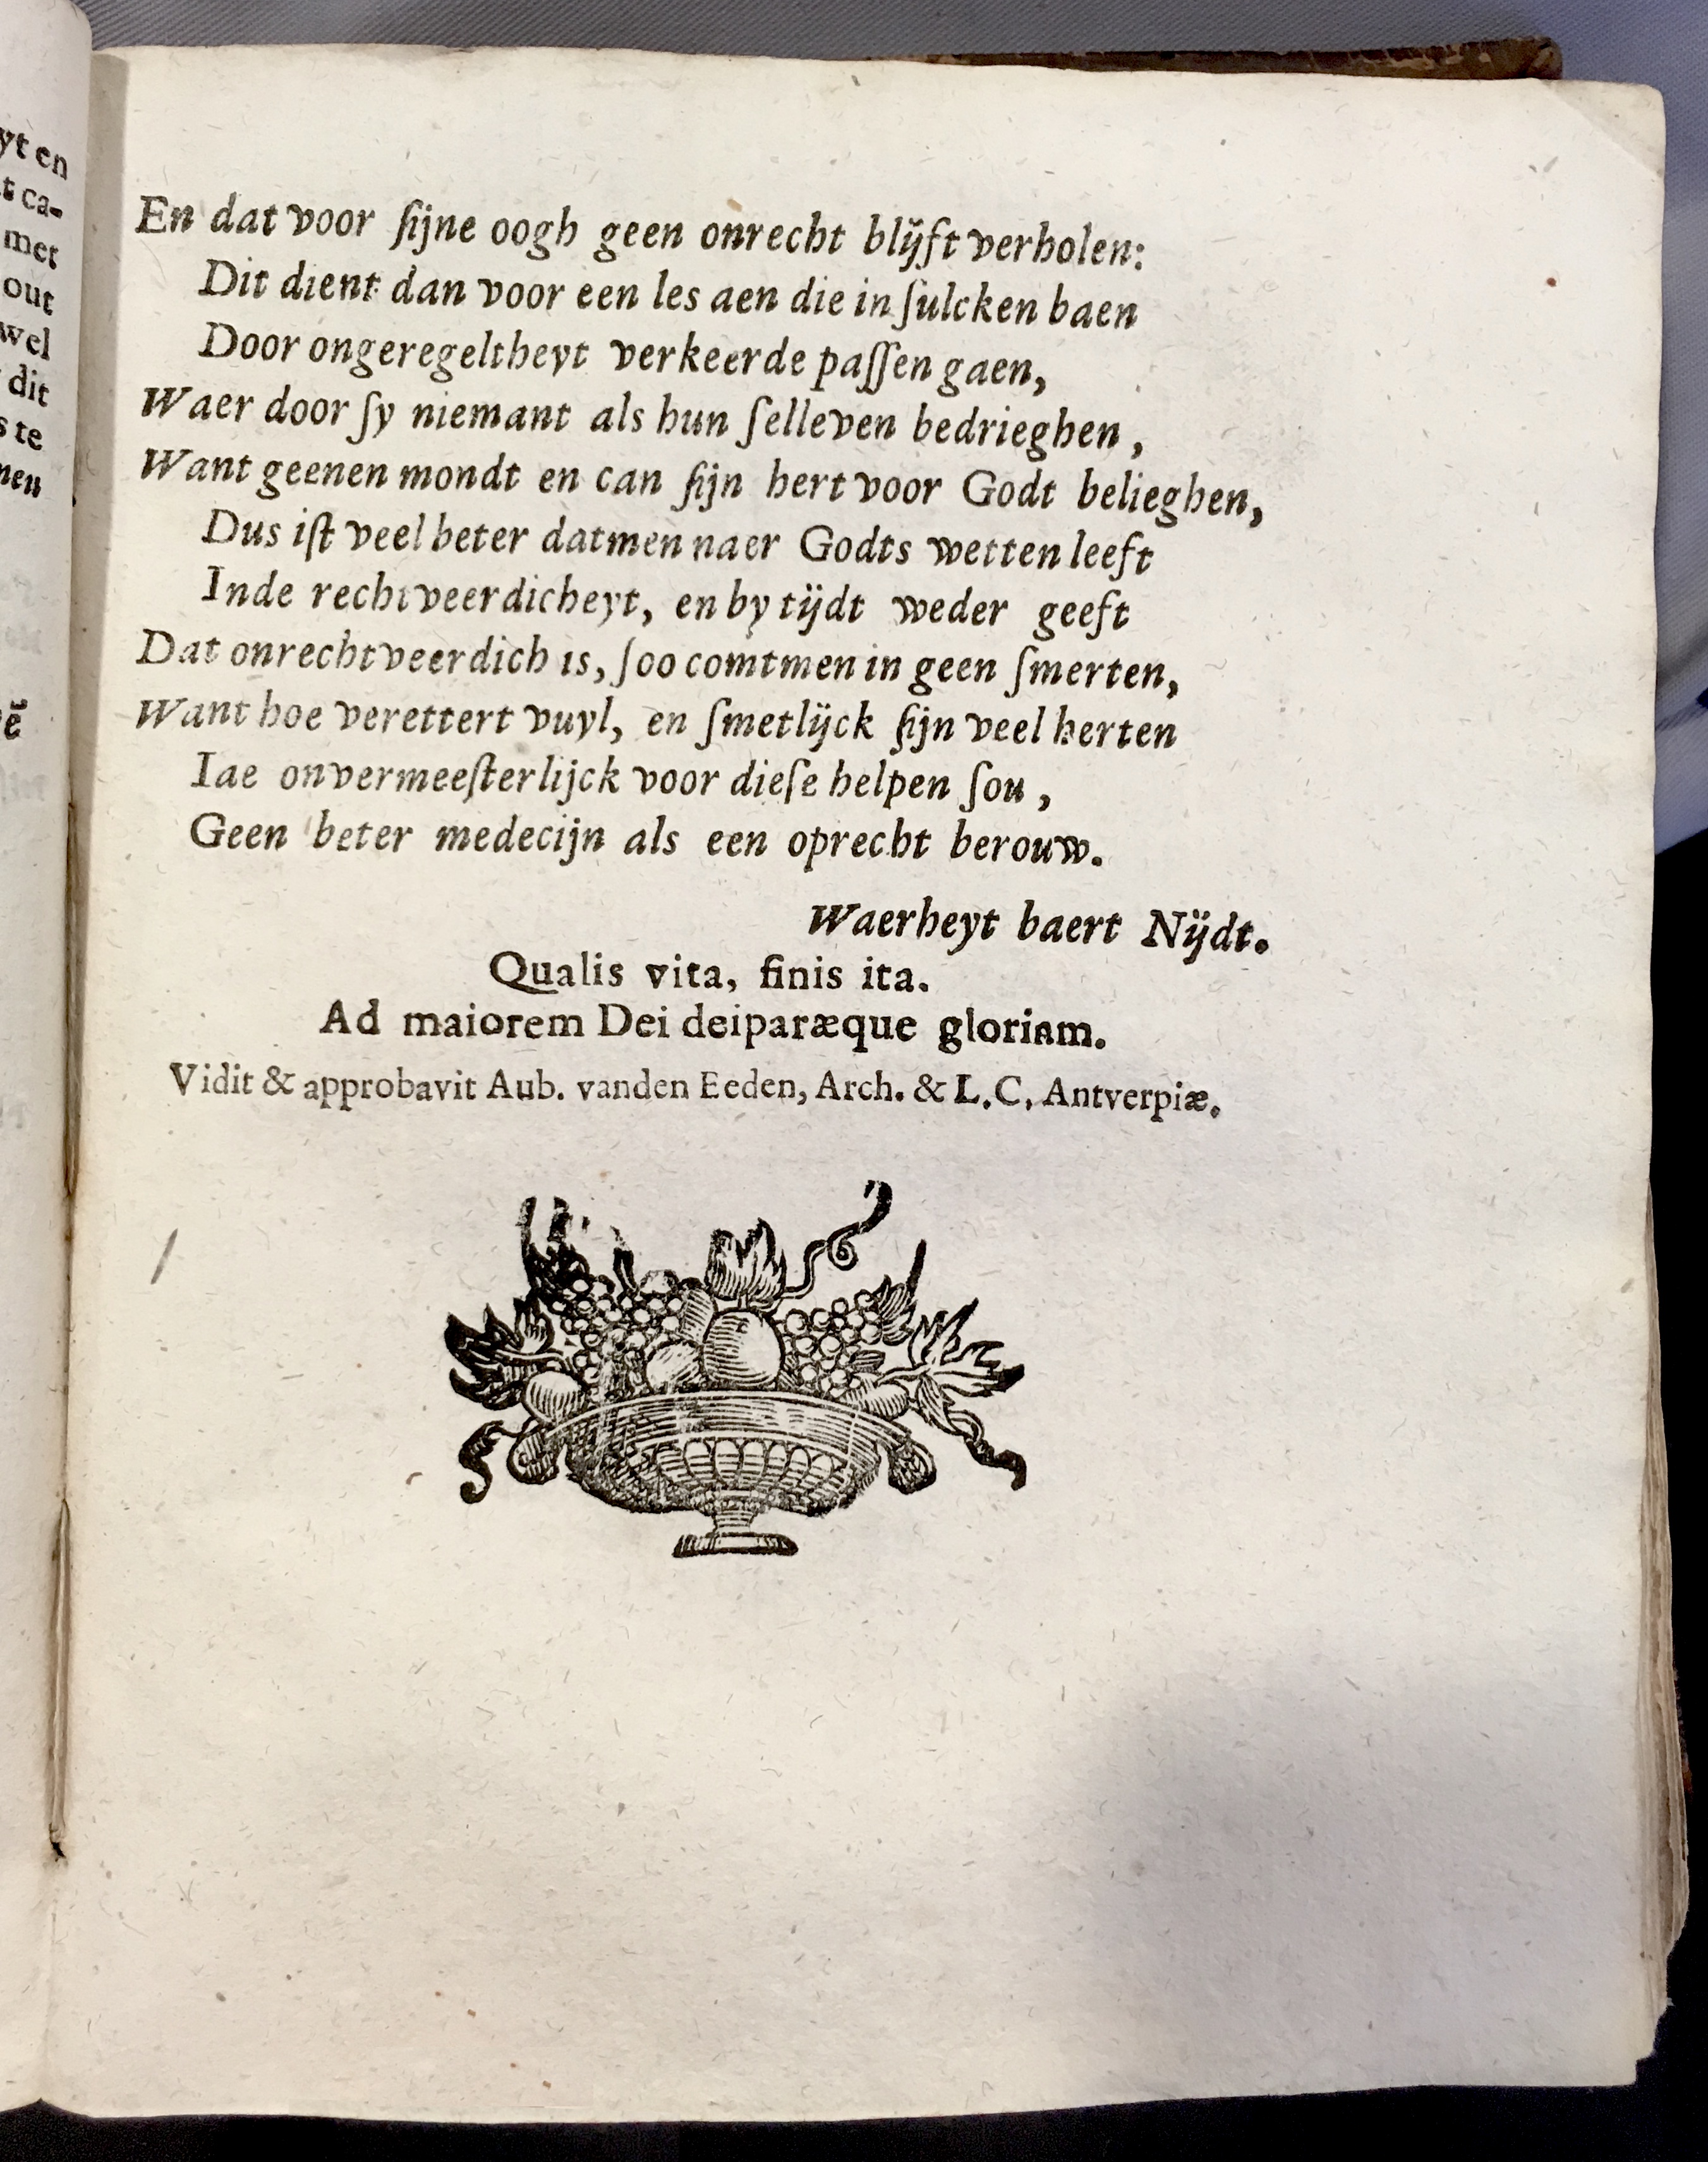 yt en
t ca-
met
out
wel
dit
s te
nen
vē
En dat voor ſijne oogh geen onrecht blijft verholen:
Dit dient dan voor een les aen die in ſulcken baen
Door ongeregeltheyt verkeerde paſſen gaen,
Waer door ſy niemant als hun ſelleven bedrieghen,
Want geenen mondt en can ſijn hert voor Godt belieghen,
Dus iſt veel beter datmen naer Godts wetten leeft
Inde rechtveerdicheyt, en by tijdt weder geeft
Dat onrechtveerdich is, ſoo comtmen in geen ſmerten,
Want hoe verettert vuyl, en ſmetlijck ſijn veel herten
Iae onvermeeſterlijck voor dieſe helpen ſou,
Geen beter medecijn als een oprecht berouw.
Waerheyt baert Nijdt.
Qualis vita, finis ita.
Ad maiorem Dei deiparæque gloriam.
Vidit & approbavit Aub. vanden Eeden, Arch. & L.C. Antverpiæ.